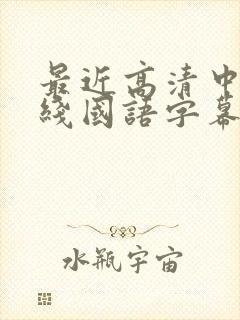 最近高清中
綫國語字幕
水瓶宇宙